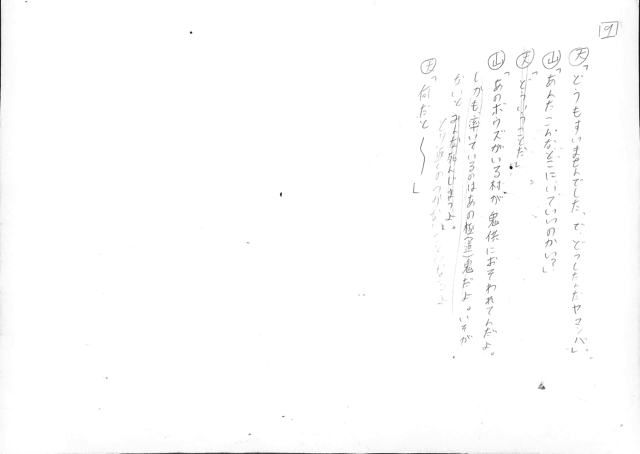 9
天「どうもすいませんでした、で、どうしたんだヤマンバ」
山「あんたこんなとこにいていいのかい?」
天「どういうことだ」
山「あのボウズがいる村が鬼供におそわれてんだよ。
しかも、率いているのはあの極(道)鬼だよ。いそが
ないとみんな死んじまうよ。
とり返しのつかない
天「何だと〜〜」